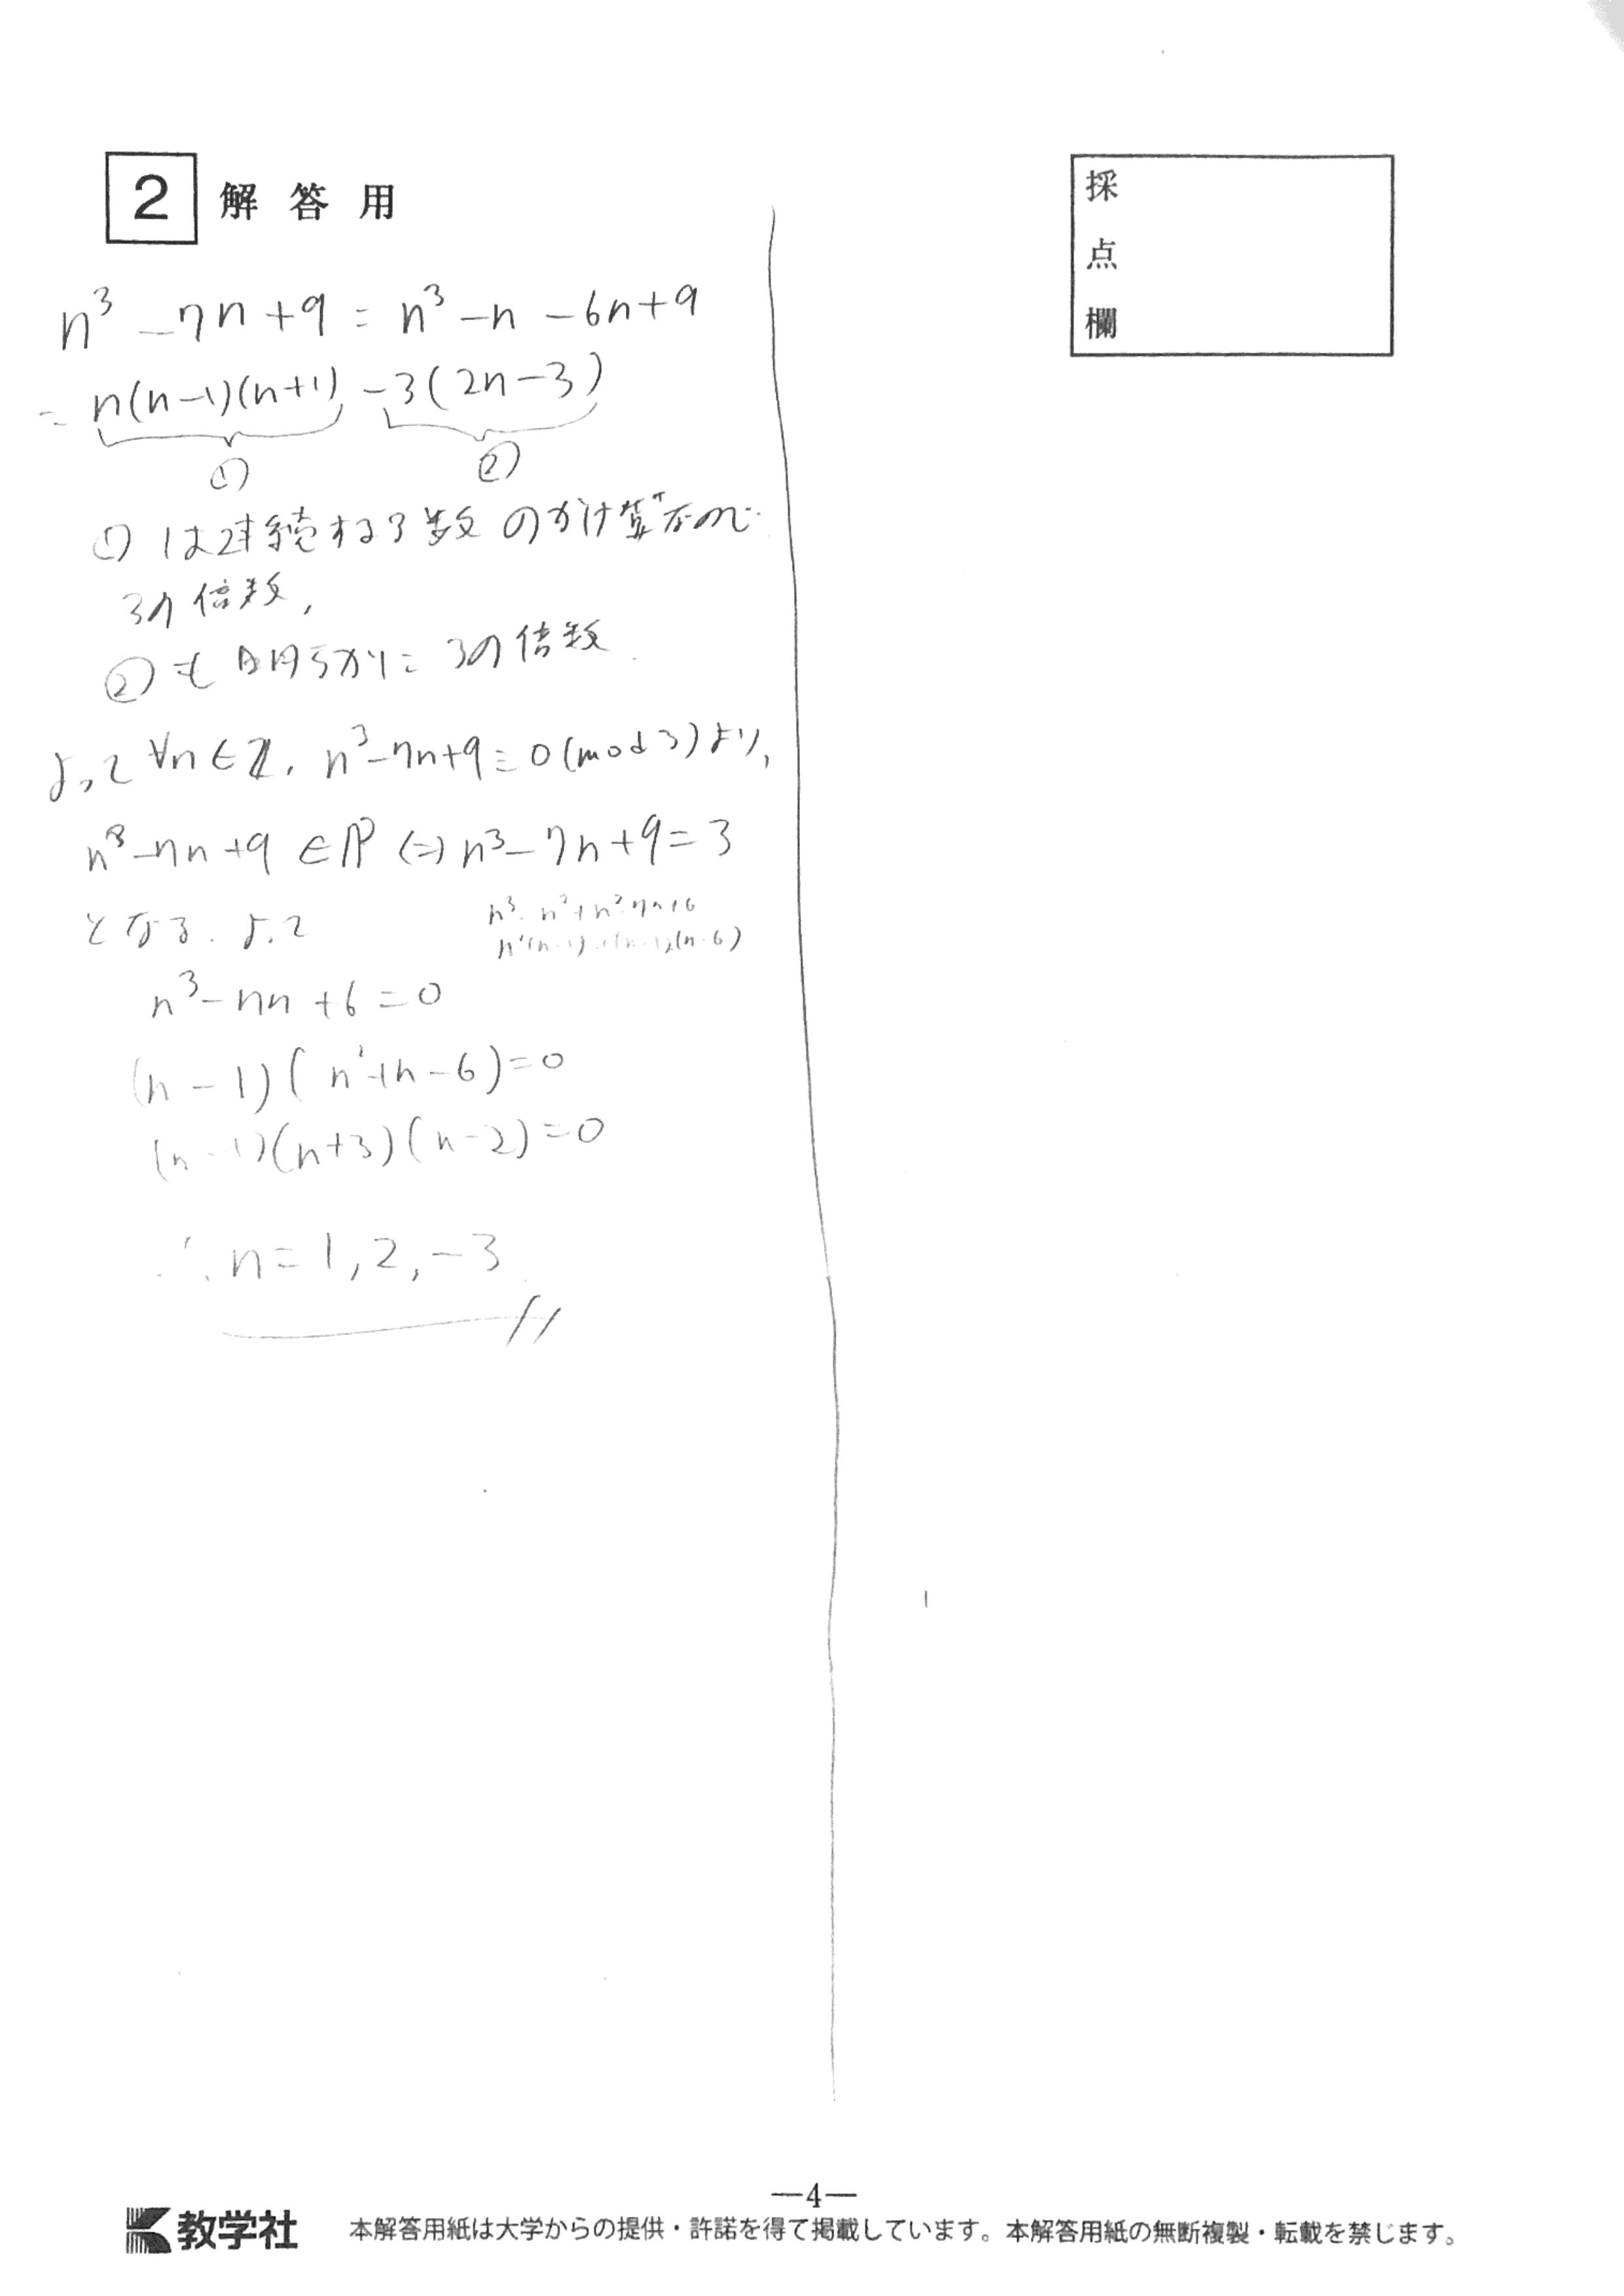 2 解答用
採点欄
n³ - 7n + 9 = n³ - n - 6n + 9
= n(n-1)(n+1) - 3(2n-3)
① ②
①は連続する3数のかけ算なので
3の倍数,
②も明らかに3の倍数.
よって ∀n∈ℤ, n³-7n+9≡0(mod 3)より,
n³-7n+9 ∈ℙ ⇔ n³-7n+9=3
となる. よって
n³-n²+n²-7n+6
n²(n-1)+(n-1)(n-6)
n³-7n+6=0
(n-1)(n²+n-6)=0
(n-1)(n+3)(n-2)=0
∴ n=1,2,-3
—4—
教学社 本解答用紙は大学からの提供・許諾を得て掲載しています。本解答用紙の無断複製・転載を禁じます。